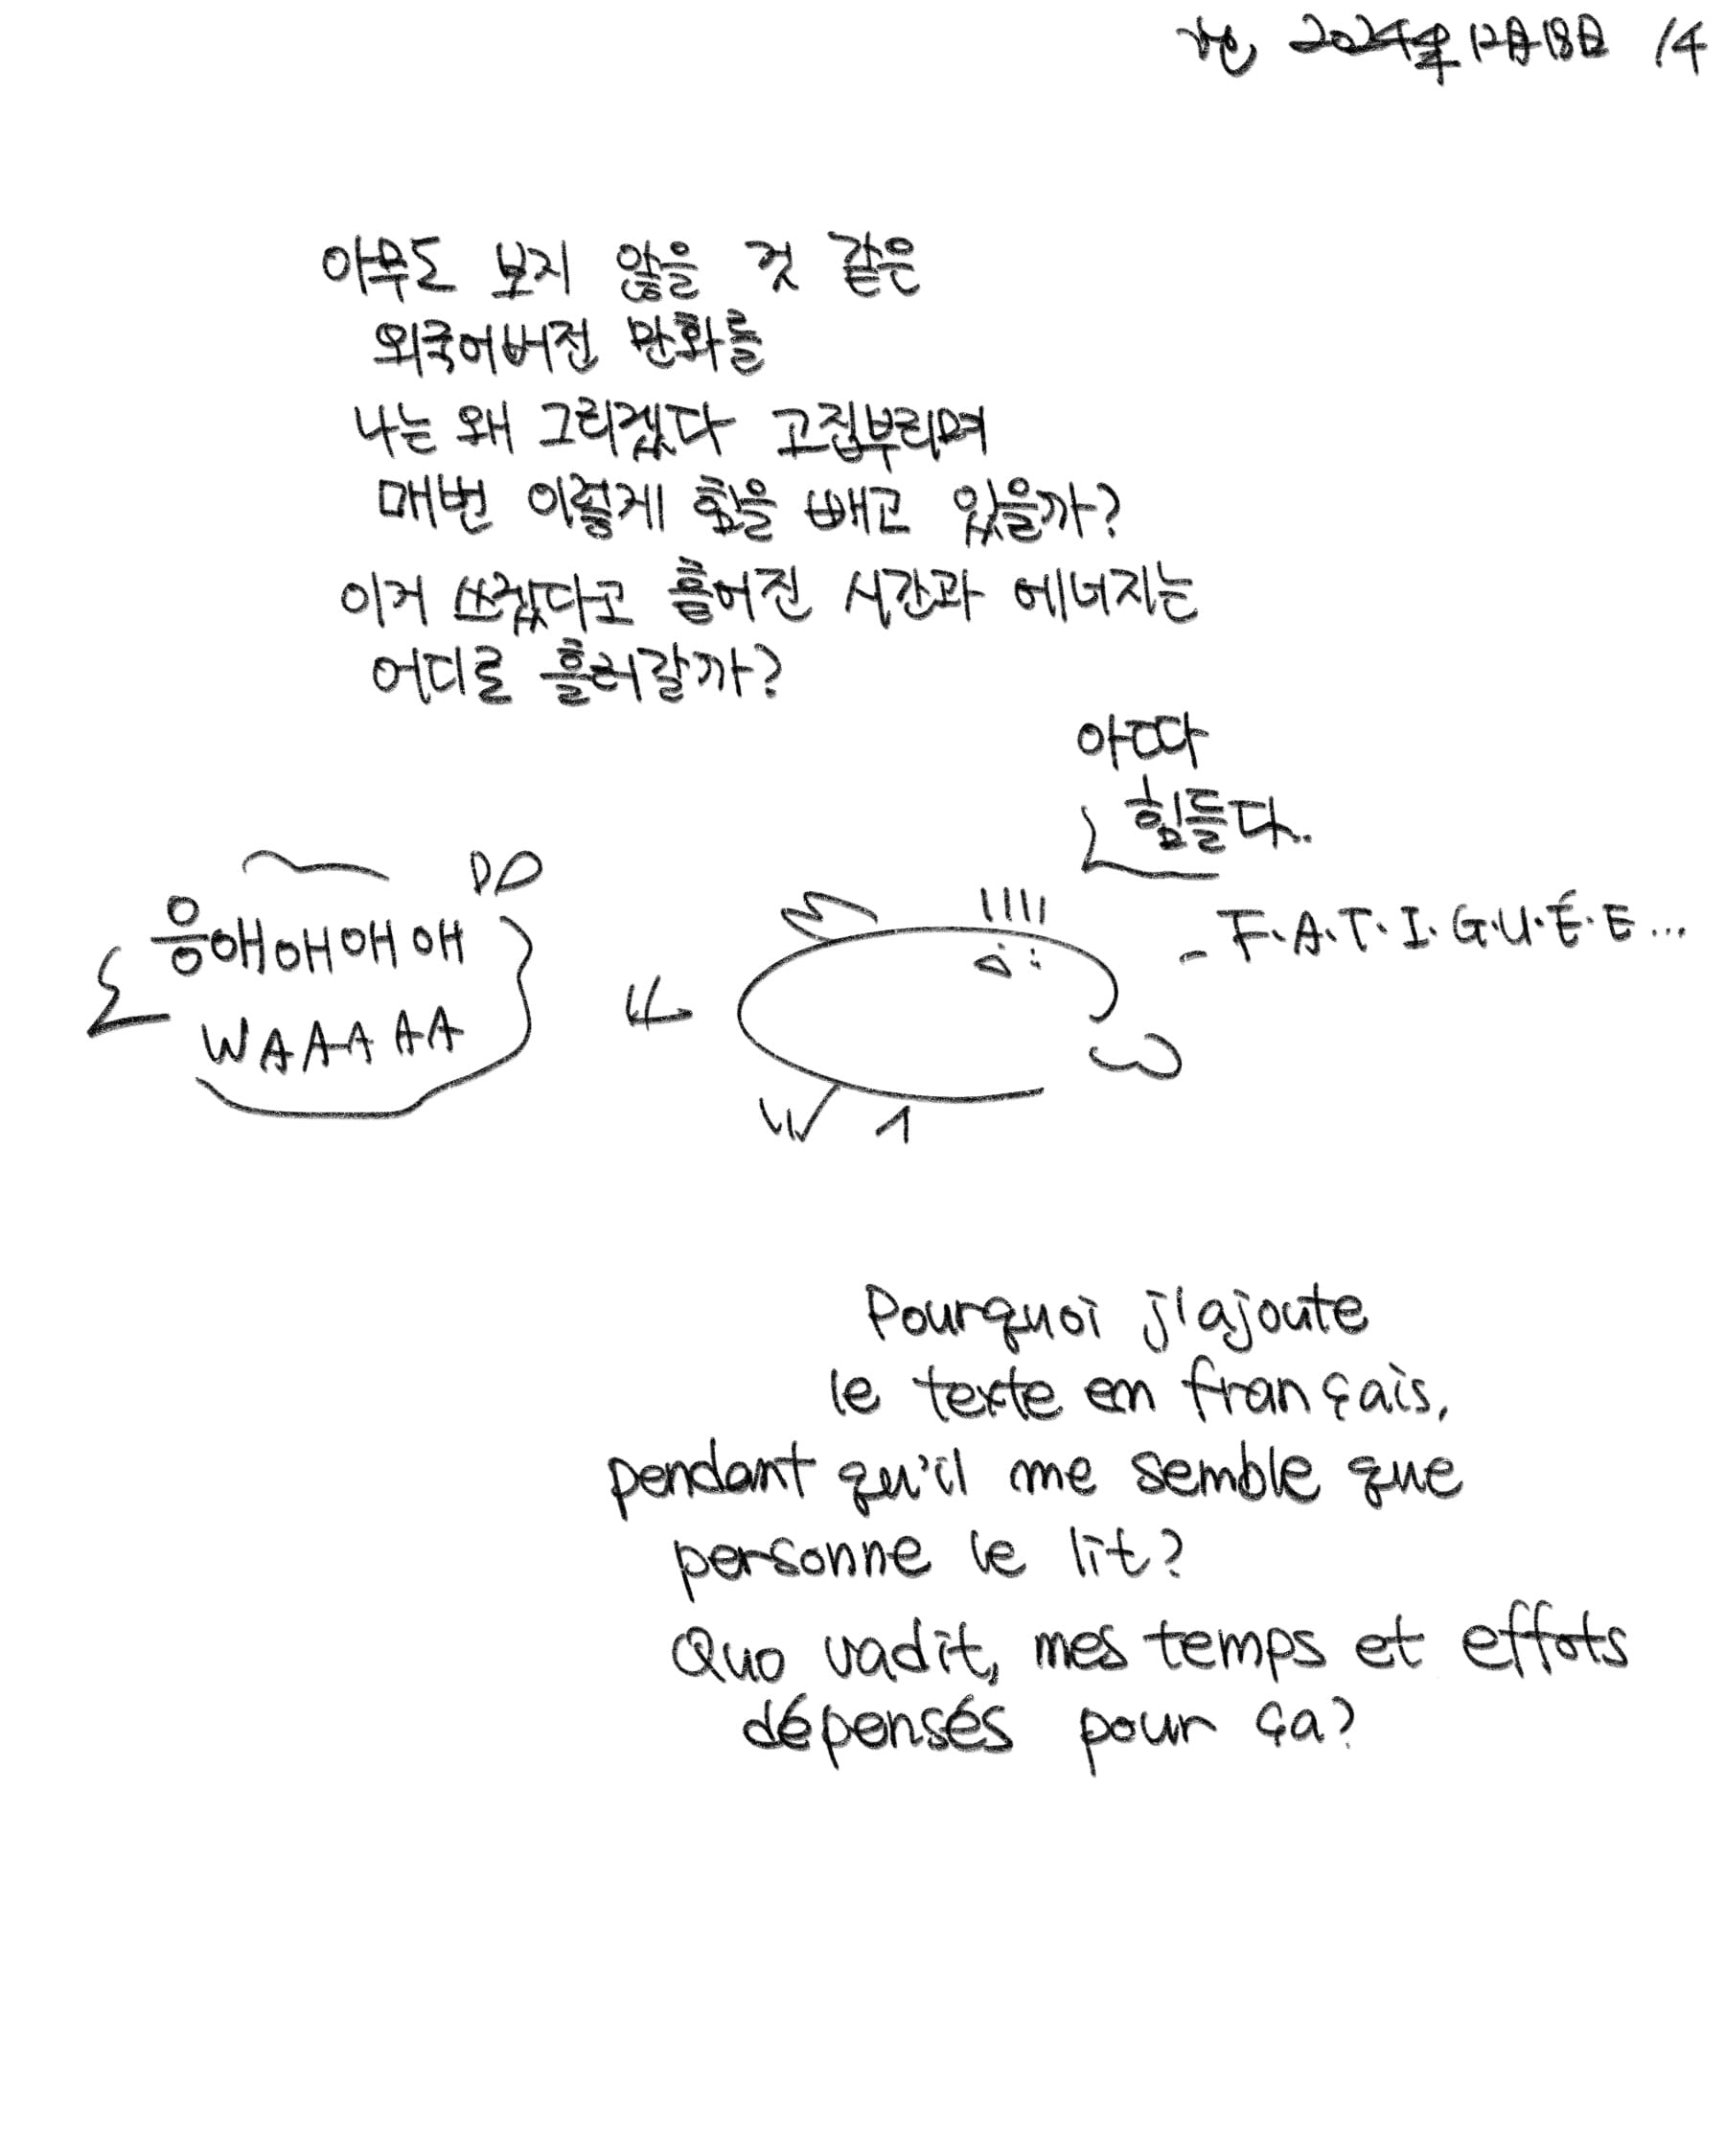 2024年12月18日 14
아무도 보지 않을 것 같은
외국어버전 만화를
나는 왜 그리겠다 고집부리며
매번 이렇게 힘을 빼고 있을까?
이거 쓰겠다고 흩어진 시간과 에너지는
어디로 흘러갈까?
아따
힘들다..
- F.A.T.I.G.U.É.E...
응애애애애
WAAAAA
Pourquoi j'ajoute
le texte en français,
pendant qu'il me semble que
personne le lit?
Quo vadit, mes temps et effots
dépensés pour ça?